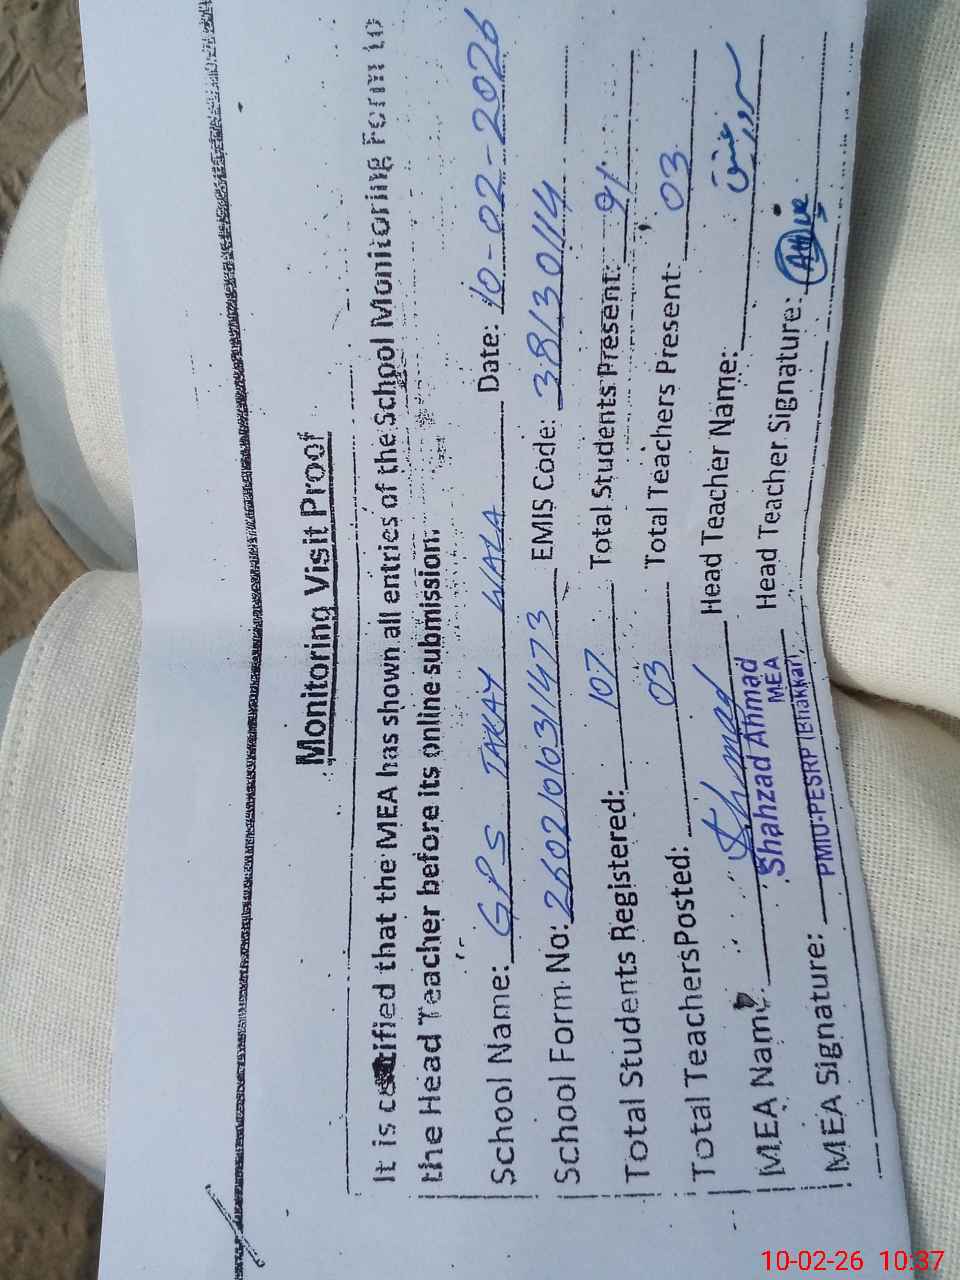 Monitoring Visit Proof
It is certified that the MEA has shown all entries of the School Monitoring Form to
the Head Teacher before its online submission.
School Name: GPS TAKAY WALA Date: 10-02-2026
School Form No: 2602101031473 EMIS Code: 38130114
Total Students Registered: 107 Total Students Present: 91
Total Teachers Posted: 03 Total Teachers Present: 03
MEA Name: Head Teacher Name:
Shahzad Ahmad
MEA
MEA Signature: PMIU-PESRP (Bhakkar) Head Teacher Signature:
10-02-26 10:37